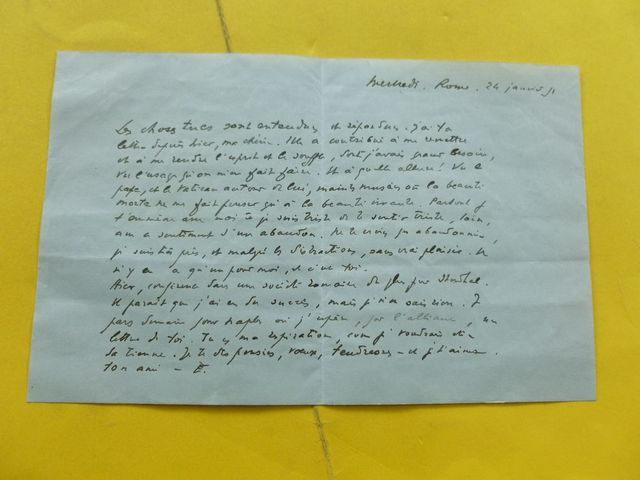 Mercredi. Rome. 24 janvier 51
Les choses tues sont entendues, et répondues. J'ai ta
lettre depuis hier, ma chérie. Elle a contribué à me remettre
et à me rendre l'esprit et le souffle, dont j'avais grand besoin,
vu l'usage qu'on m'en fait faire. Et à quelle allure! Vu le
pape, et le Vatican autour de lui, maints musées où la beauté
morte ne me fait penser qu'à la beauté vivante. Partout je
t'emmène avec moi et je suis triste de te sentir triste, loin,
avec ce sentiment d'un abandon. Ne te crois pas abandonnée,
je suis très pris, et malgré les distractions, sans vrai plaisir. Il
n'y en a qu'un pour moi, et c'est toi.
Hier, conférence dans une société romaine de plus pur Stendhal.
Il paraît que j'ai eu du succès, mais je n'en sais rien. Je
pars demain pour Naples où j'espère, par l'alliance, une
lettre de toi. Tu es ma respiration, comme je voudrais être
la tienne. Je te dis pensées, vœux, tendresses - et je t'aime.
ton ami - E.